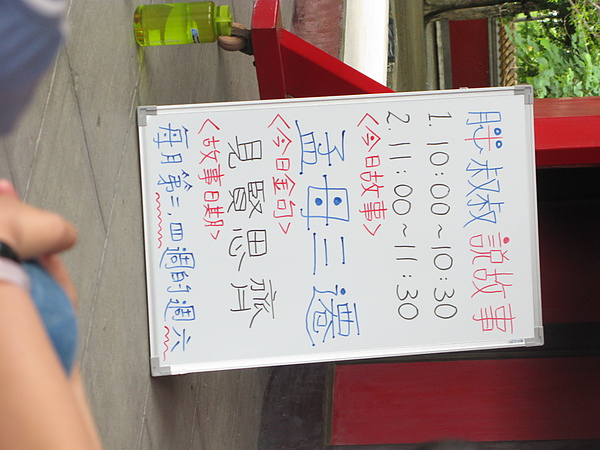 胖叔叔說故事
1. 10:00~10:30
2. 11:00~11:30
<今日故事>
孟母三遷
<今日金句>
見賢思齊
<故事日期>
每月第二、四週的週六